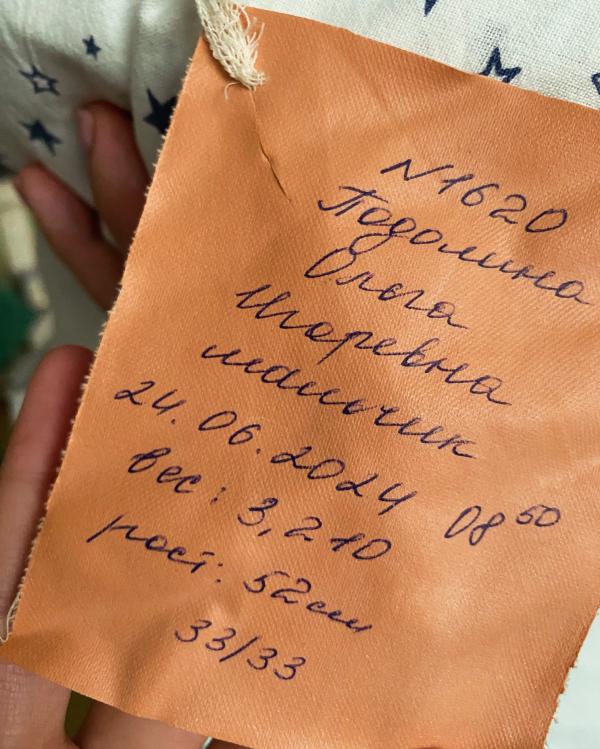 N1620
Подолина
Ольга
Игоревна
мальчик
24.06.2024 08 50
вес: 3,210
рост: 52см
33/33